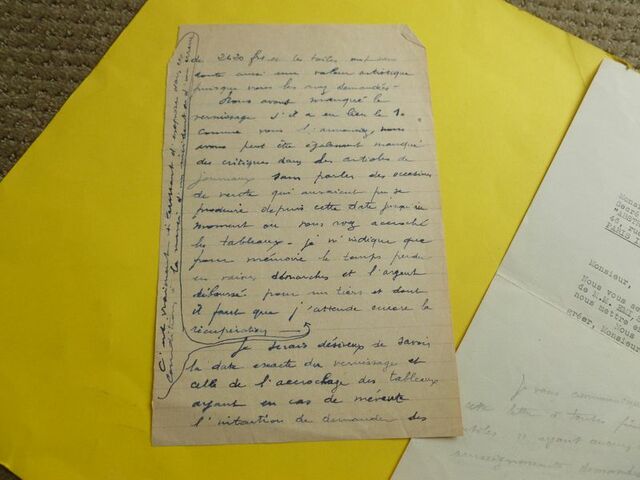 de 2430 frs et les toiles ont sans
doute aussi une valeur artistique
puisque vous les avez demandées -
Nous avons manqué le
vernissage s'il a eu lieu le 1o
comme vous l'annonciez, nous
avons peut être également manqué
des critiques dans des articles de
journaux sans parler des occasions
de vente qui auraient pu se
produire depuis cette date jusqu'au
moment ou vous avez accroché
les tableaux - je n'indique que
pour mémoire le temps perdu
en vaines démarches et l'argent
déboursé pour un tiers et dont
il faut que j'attende encore la
récupération
C'est vraiment d'exposer dans ces
conditions à la merci d'un accident ou d'une erreur
Je serais désireux de savoir
la date exacte du vernissage et
celle de l'accrochage des tableaux
ayant en cas de mévente
l'intention de demander des
Monsie
46, rue
PARIS
Monsieur,
Nous vous
de M.
nous mettre
gréer, Monsieur
Je vous
cette lettre à toutes
ayant aucun
renseignements